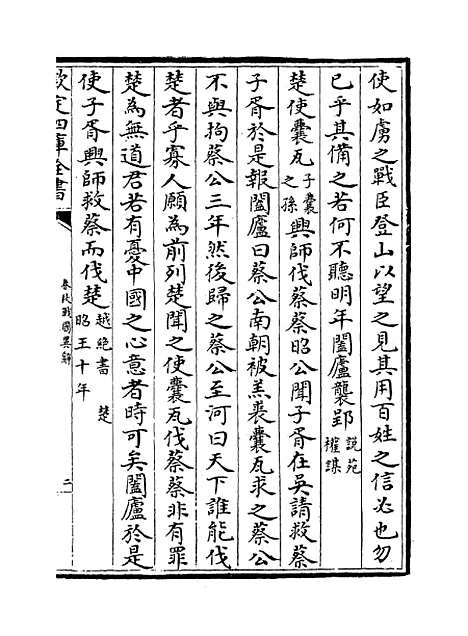 使如虜之戰臣登山以望之見其用百姓之信必也勿
已乎其備之若何不聽明年闔廬襲郢説苑權謀
楚使囊瓦子囊之孫興師伐蔡蔡昭公聞子胥在吳請救蔡
子胥於是報闔廬曰蔡公南朝被羔裘囊瓦求之蔡公
不與拘蔡公三年然後歸之蔡公至河曰天下誰能伐
楚者乎寡人願為前列楚聞之使囊瓦伐蔡蔡非有罪
楚為無道君若有憂中國之心意者時可矣闔廬於是
使子胥興師救蔡而伐楚越絶書楚昭王十年
欽定四庫全書
春秋戰國異辭
二